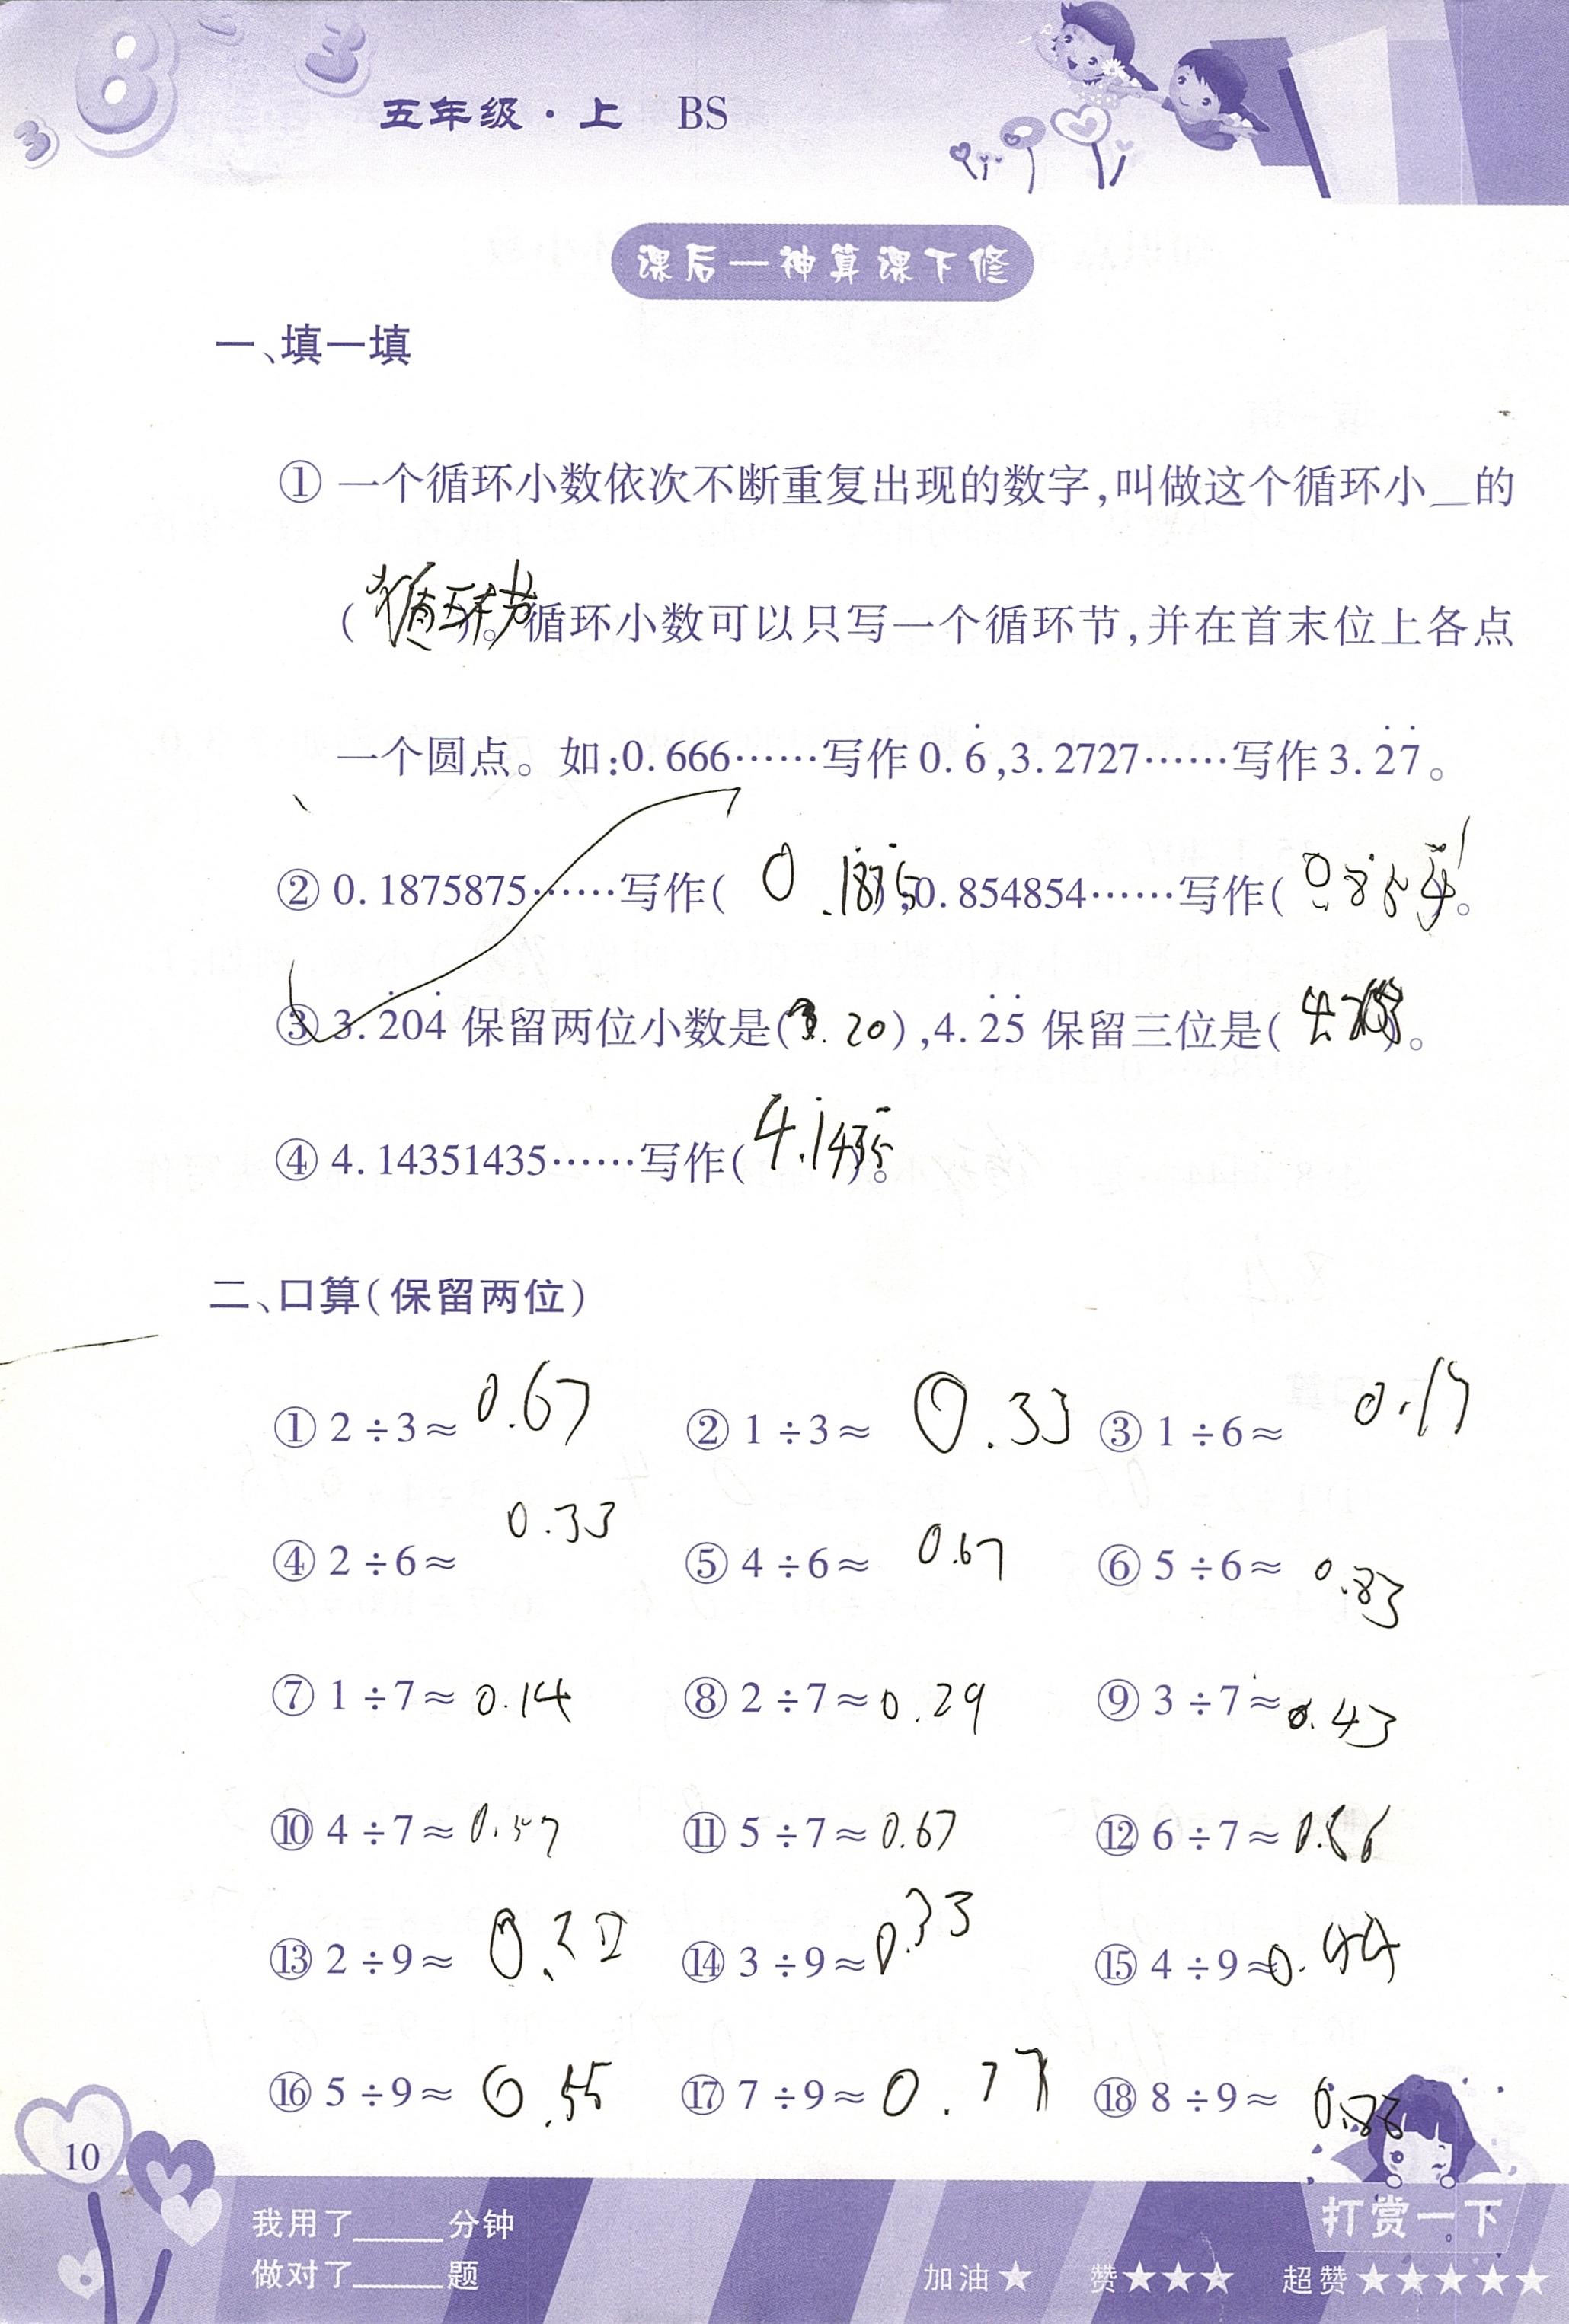 五年级·上 BS
课后一神算课下修
一、填一填
① 一个循环小数依次不断重复出现的数字,叫做这个循环小__的
(循环节)。循环小数可以只写一个循环节,并在首末位上各点
一个圆点。如:0.666……写作0.6̇,3.2727……写作3.2̇7̇。
② 0.1875875……写作(0.18̇75̇),0.854854……写作(0.8̇54̇)。
③ 3.2̇04̇ 保留两位小数是(3.20),4.2̇5̇ 保留三位是( )。
④ 4.14351435……写作(4.1̇435̇)。
二、口算(保留两位)
① 2÷3≈ 0.67 ② 1÷3≈ 0.33 ③ 1÷6≈ 0.17
④ 2÷6≈ 0.33 ⑤ 4÷6≈ 0.67 ⑥ 5÷6≈ 0.83
⑦ 1÷7≈ 0.14 ⑧ 2÷7≈ 0.29 ⑨ 3÷7≈ 0.43
⑩ 4÷7≈ 0.57 ⑪ 5÷7≈ 0.67 ⑫ 6÷7≈ 0.86
⑬ 2÷9≈ 0.22 ⑭ 3÷9≈ 0.33 ⑮ 4÷9≈ 0.44
⑯ 5÷9≈ 0.55 ⑰ 7÷9≈ 0.77 ⑱ 8÷9≈ 0.88
10
我用了_____分钟
做对了_____题
打赏一下
加油★ 赞★★★ 超赞★★★★★